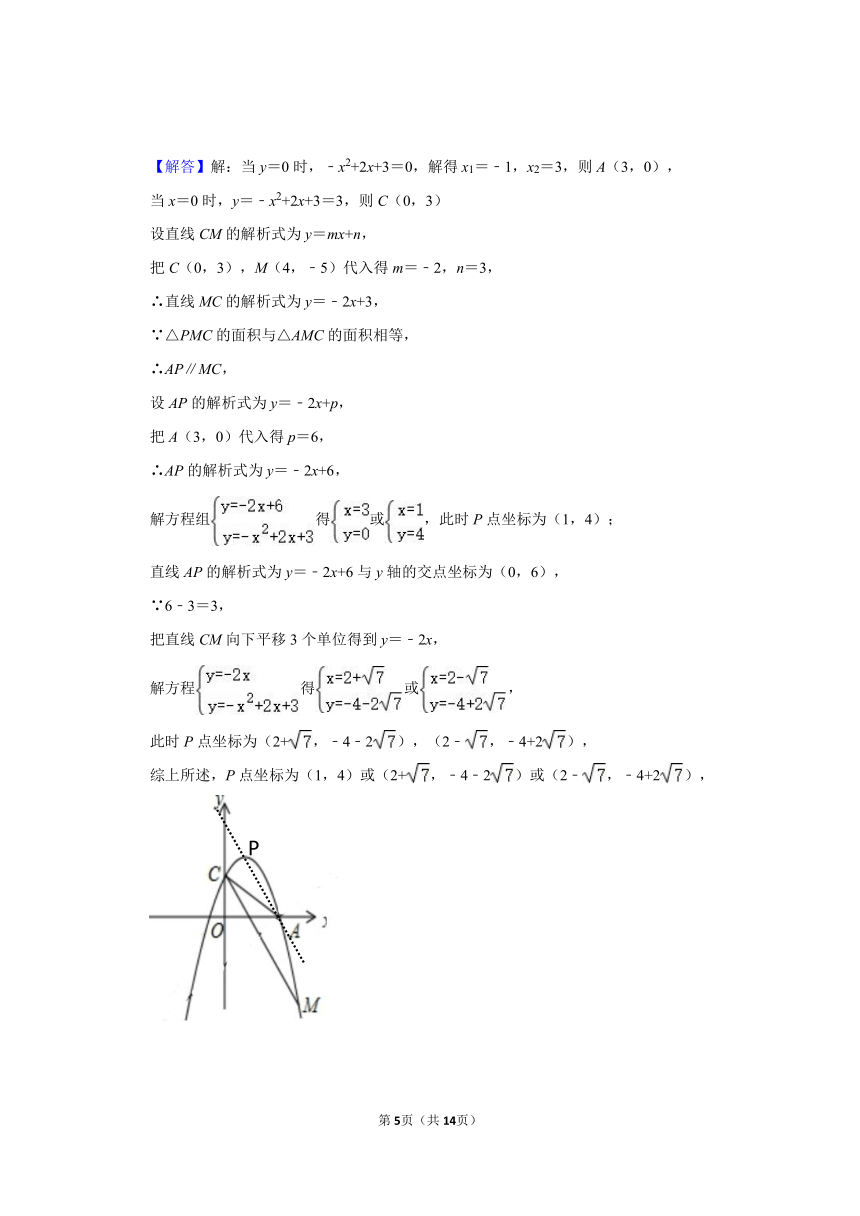 【解答】解：当 y＝0 时，﹣x²+2x+3＝0，解得 x₁＝﹣1，x₂＝3，则 A（3，0），
当 x＝0 时，y＝﹣x²+2x+3＝3，则 C（0，3）
设直线 CM 的解析式为 y＝mx+n，
把 C（0，3），M（4，﹣5）代入得 m＝﹣2，n＝3，
∴直线 MC 的解析式为 y＝﹣2x+3，
∵△PMC 的面积与△AMC 的面积相等，
∴AP∥MC，
设 AP 的解析式为 y＝﹣2x+p，
把 A（3，0）代入得 p＝6，
∴AP 的解析式为 y＝﹣2x+6，
解方程组{y=-2x+6 y=-x²+2x+3 得{x=3 y=0 或{x=1 y=4，此时 P 点坐标为（1，4）；
直线 AP 的解析式为 y＝﹣2x+6 与 y 轴的交点坐标为（0，6），
∵6﹣3＝3，
把直线 CM 向下平移 3 个单位得到 y＝﹣2x，
解方程{y=-2x y=-x²+2x+3 得{x=2+√7 y=-4-2√7 或{x=2-√7 y=-4+2√7，
此时 P 点坐标为（2+√7，﹣4﹣2√7），（2﹣√7，﹣4+2√7），
综上所述，P 点坐标为（1，4）或（2+√7，﹣4﹣2√7）或（2﹣√7，﹣4+2√7），
y
P
C
O
A
M
第 5页（共 14页）